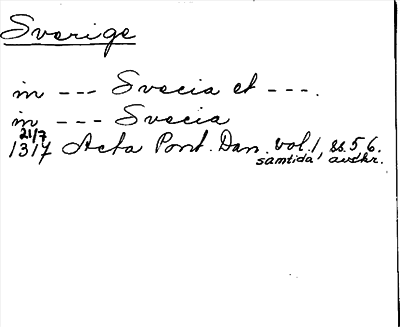 Sverige
in --- Svecia et ---.
in --- Svecia
21/7
1317 Acta Pont. Dan. vol. 1, ss. 56.
samtida avskr.